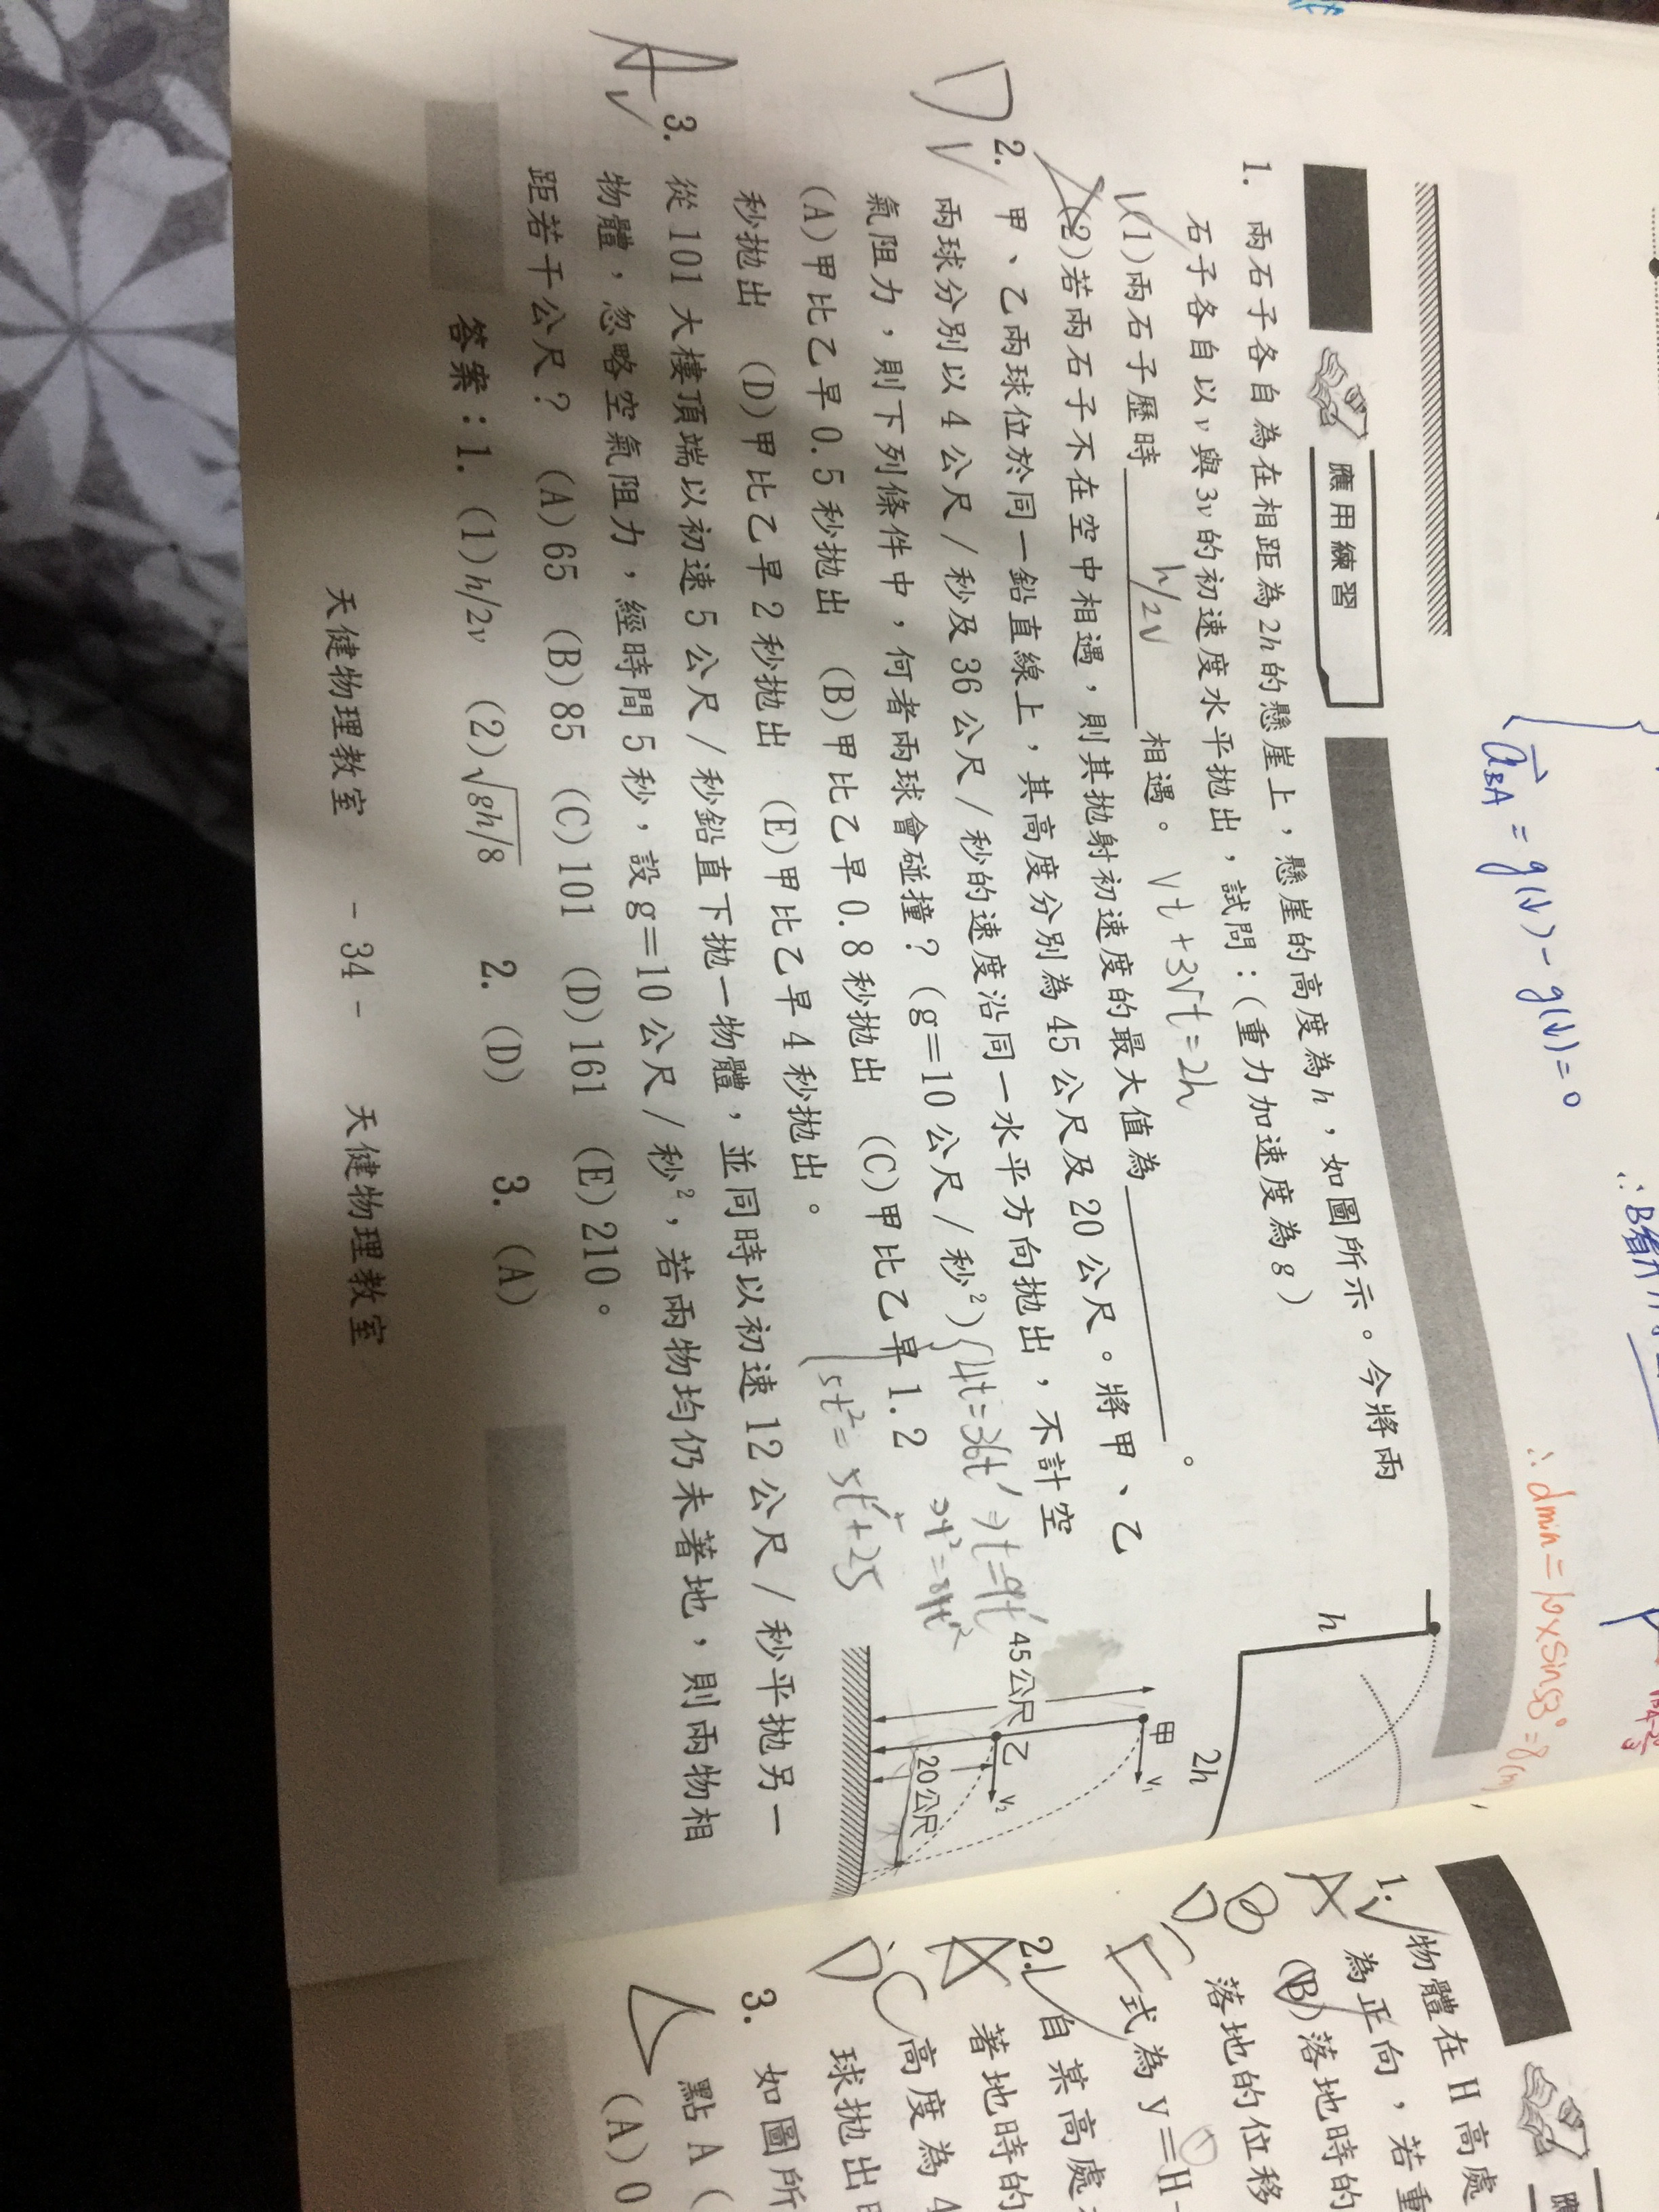 a⃗BA = g(↓) - g(↓) = 0
∴ dmin = 10 × sin53° = 8(m)
應用練習
1. 兩石子各自為在相距為2h的懸崖上，懸崖的高度為h，如圖所示。今將兩
石子各自以v與3v的初速度水平拋出，試問：(重力加速度為g)
(1)兩石子歷時 h/2v 相遇。 vt + 3vt = 2h
(2)若兩石子不在空中相遇，則其拋射初速度的最大值為。
h
2h
D
2. 甲、乙兩球位於同一鉛直線上，其高度分別為45公尺及20公尺。將甲、乙
兩球分別以4公尺/秒及36公尺/秒的速度沿同一水平方向拋出，不計空
氣阻力，則下列條件中，何者兩球會碰撞？(g=10公尺/秒²)
(A)甲比乙早0.5秒拋出 (B)甲比乙早0.8秒拋出 (C)甲比乙早1.2
秒拋出 (D)甲比乙早2秒拋出 (E)甲比乙早4秒拋出。
4t = 36t' ⇒ t = 9t'
5t² = 5t'² + 25
甲
V₁
45公尺
乙
V₂
20公尺
A
3. 從101大樓頂端以初速5公尺/秒鉛直下拋一物體，並同時以初速12公尺/秒平拋另一
物體，忽略空氣阻力，經時間5秒，設g=10公尺/秒²，若兩物均仍未著地，則兩物相
距若干公尺？ (A)65 (B)85 (C)101 (D)161 (E)210。
答案：1. (1)h/2v (2)√gh/8 2. (D) 3. (A)
天健物理教室 - 34 - 天健物理教室
1. 物體在H高處
為正向，若重
(B)落地時的
落地的位移
式為y=H-
2. 自某高處
著地時的
高度為4
球拋出
3. 如圖所
點A(
(A)0